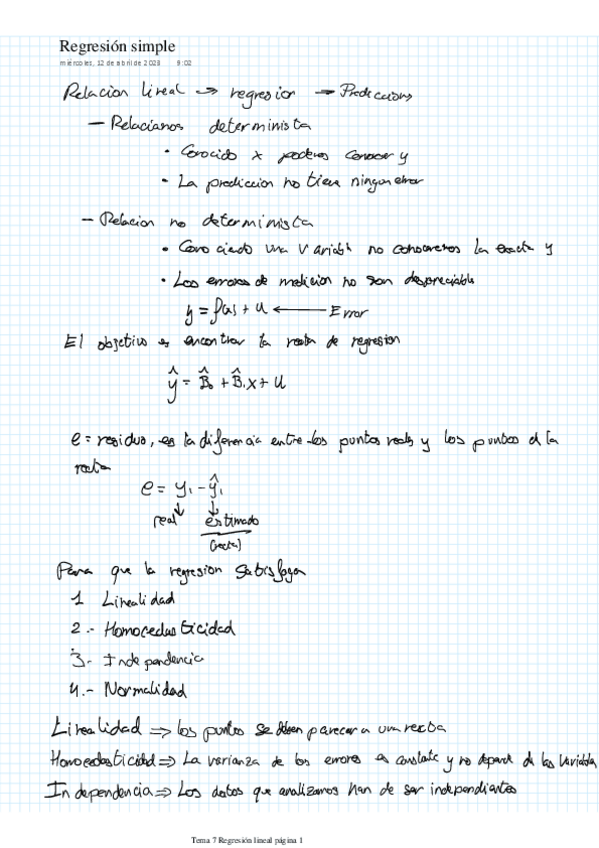 Regresión simple
miércoles, 12 de abril de 2023 9:02
Relacion lineal → regresion → Predicciones
— Relaciones determinista
• Conocido x podemos conocer y
• La prediccion no tiene ningun error
— Relacion no determinista
• Conociendo una variable no conoceremos la exacta y
• Los errores de medicion no son despreciable
y = f(x) + u ← Error
El objetivo es encontrar la recta de regresion
ŷ = B̂₀ + B̂₁x + u
e = residuo, es la diferencia entre los puntos reales y los puntos d la
recta
e = yᵢ - ŷᵢ
real estimado
(recta)
Para que la regresion satisfaga
1 Linealidad
2.- Homocedasticidad
3.- Independencia
4.- Normalidad
Linealidad ⇒ los puntos se deben parecer a una recta
Homocedasticidad ⇒ La varianza de los errores es constate y no depende de las variables
Independencia ⇒ Los datos que analizamos han de ser independientes
Tema 7 Regresión lineal página 1